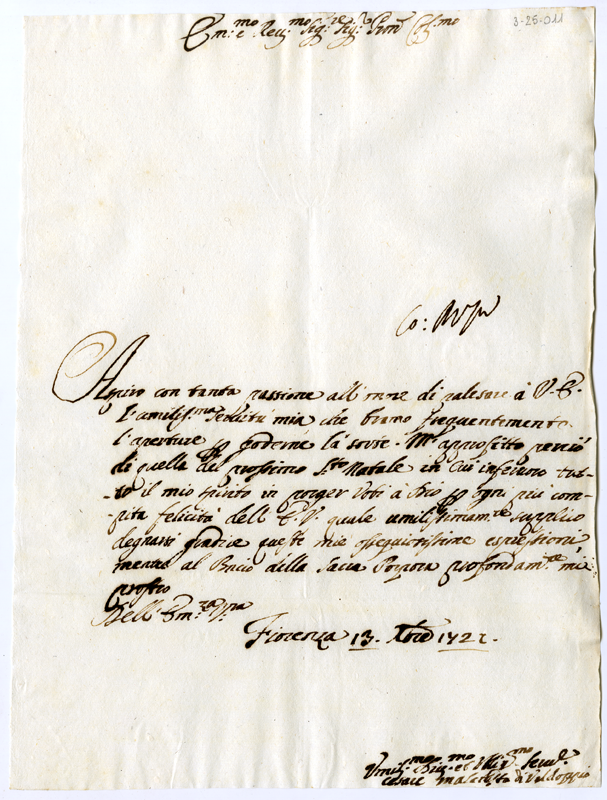 3-25-011
Em:mo e Rev:mo Sig:re Sig:
Co:
Aspiro con tanta passione all'onore di palesare à V. E.
l'umiliss.ma servitù mia che bramo frequentemente
l'aperture p goderne la sorte. M'approfitto perciò
di quella del prossimo S.to Natale in cui infervoro tut-
-to il mio spirito in porger Voti à Dio p ogni più com-
-pita felicità dell' E. V. quale umilissimam.te supplico
degnarsi gradire queste mie ossequiosissime espressioni
mentre al Bacio della Sacra Porpora profondam.te mi
prostro
Dell' Em:za V.ra
Fiorenza 13. Xbre 172
Umil:mo Dev:mo et Obli:mo Serv.e
Cesare di Valdoppio